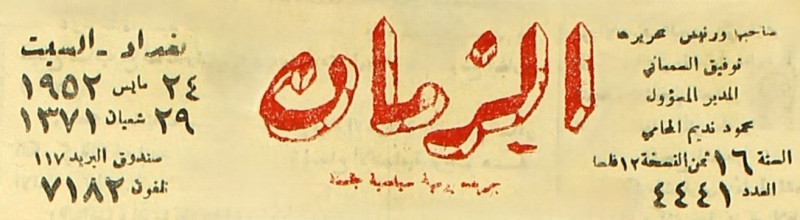 صاحبها ورئيس تحريرها
توفيق السمعاني
المدير المسؤول
محمود نديم المحامي
السنة ١٦ ثمن النسخة ١٢ فلسا
العدد ٤٤٤١
الزمان
جريدة يومية سياسية
بغداد - السبت
٢٤ مايس ١٩٥٢
٢٩ شعبان ١٣٧١
صندوق البريد ١١٧
تلفون ٧١٨٢